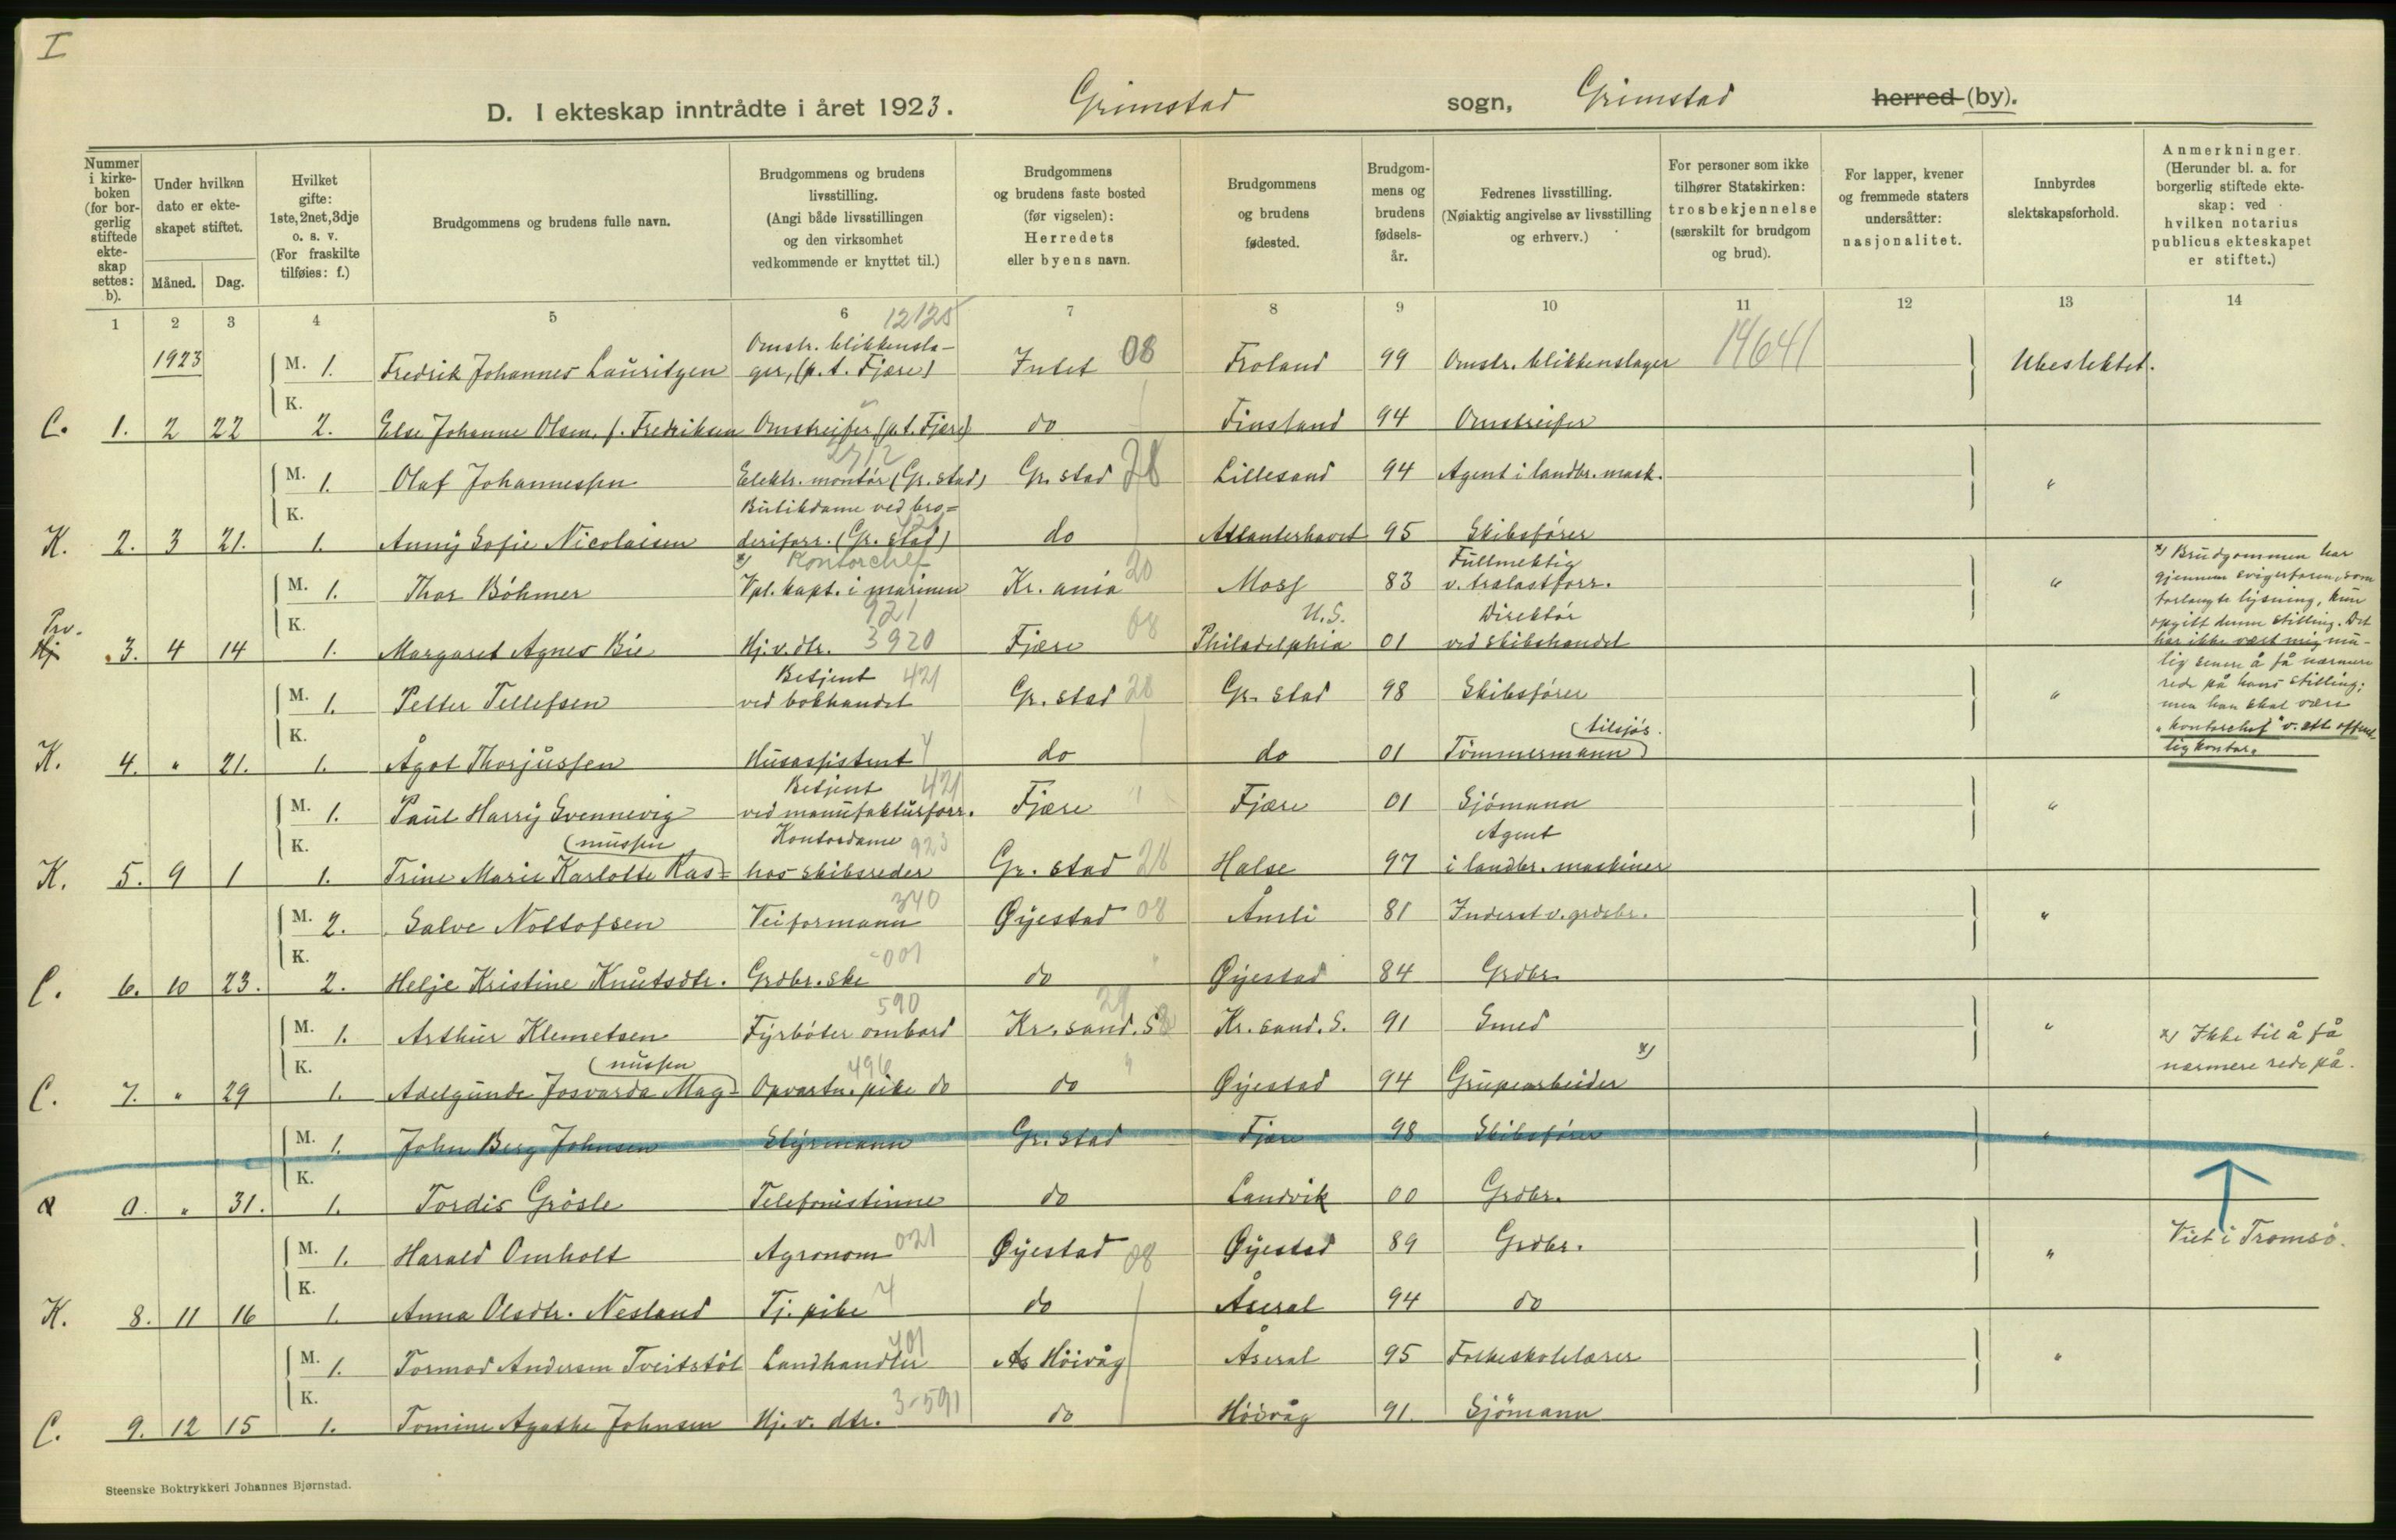 I
D. I ekteskap inntrådte i året 1923. Grimstad sogn, Grimstad herred (by).
Nummer i kirke-boken (for bor-gerlig stiftede ekte-skap settes: b).
Under hvilken dato er ekte-skapet stiftet.
Måned. Dag.
Hvilket gifte: 1ste, 2net, 3dje o. s. v. (For fraskilte tilføies: f.)
Brudgommens og brudens fulle navn.
Brudgommens og brudens livsstilling. (Angi både livsstillingen og den virksomhet vedkommende er knyttet til.)
Brudgommens og brudens faste bosted (før vigselen): Herredets eller byens navn.
Brudgommens og brudens fødested.
Brudgom-mens og brudens fødsels-år.
Fedrenes livsstilling. (Nøiaktig angivelse av livsstilling og erhverv.)
For personer som ikke tilhører Statskirken: trosbekjennelse (særskilt for brudgom og brud).
For lapper, kvener og fremmede staters undersåtter: nasjonalitet.
Innbyrdes slektskapsforhold.
Anmerkninger. (Herunder bl. a. for borgerlig stiftede ekte-skap: ved hvilken notarius publicus ekteskapet er stiftet.)
1 2 3 4 5 6 7 8 9 10 11 12 13 14
12125
1923 M. 1. Fredrik Johannes Lauritzen Omstr. blikkensla-ger, (p. t. Fjære) Intet 08 Froland 99 Omstr. blikkenslager 14641 Ubeslektet.
C. 1. 2 22 K. 2. Else Johanne Olsen, f. Fredriksen Omstreifer (p. t. Fjære) do Finsland 94 Omstreifer
M. 1. Olaf Johannessen Elektr. montör (Gr. stad) Gr. stad 28 Lillesand 94 Agent i landbr. mask. "
K. 2. 3 21. K. 1. Anny Sofie Nicolaisen Butikdame ved bro-deriforr. (Gr. stad) 421 do Atlanterhavet 95 Skibsfører
M. 1. Thor Böhmer x) Kontorchef Vpl. kapt. i marinen 921 Kr. ania 20 Moss 83 Fullmektig v. trælastforr. "
Prv. Hj 3. 4 14 K. 1. Margaret Agnes Bie Hj. v. dtr. 3920 Fjære 08 Philadelphia U.S. 01 Direktör ved skibshandel
x) Brudgommen har
gjennem svigerfaren, som
forlangte lysning, kun
opgitt denne stilling. Det
har ikke vært mig mu-
lig senere å få nærmere
rede på hans stilling;
men han skal være
"kontorchef" v. ett offent-
lig kontor.
M. 1. Petter Tellefsen Betjent 421 ved bokhandel Gr. stad 28 Gr. stad 98 Skibsfører "
K. 4. " 21. K. 1. Ågot Thorjussen Husassistent 4 do do 01 Tömmermann (tilsjös.
M. 1. Paul Harry Svennevig Betjent 421 ved manufakturforr. Fjære Fjære 01 Sjömann "
K. 5. 9 1 K. 1. Trine Marie Karlotte Ras= (mussen Kontordame 923 hos skibsreder Gr. stad 28 Halse 97 Agent i landbr. maskiner
M. 2. Salve Nottofsen Veiformann 340 Øyestad 08 Åmli 81 Inderst v. grdsbr. "
C. 6. 10 23. K. 2. Helje Kristine Knutsdtr. Grdbr. ske -001 do Øyestad 84 Grdbr.
M. 1. Arthur Klemetsen Fyrböter ombord 590 Kr. sand. S 29 Kr. sand. S. 91 Smed "
C. 7. " 29 K. 1. Adelgunde Josvarda Mag= (nussen Opvartn. pike do 496 do Øyestad 94 Grupearbeider x)
x) Ikke til å få
nærmere rede på.
M. 1. John Berg Johnsen Styrmann Gr. stad Fjære 98 Skibsfører "
0. " 31. K. 1. Tordis Grösle Telefonistinne do Landvik 00 Grdbr.
M. 1. Harald Omholt Agronom 021 Øyestad 08 Øyestad 89 Grdbr. "
Viet i Tromsö.
K. 8. 11 16 K. 1. Anna Olsdtr. Nesland Tj. pike 4 do Åseral 94 do
M. 1. Tormod Andersen Tveitstöl Landhandler 401 Höivåg Åseral 95 Folkeskolelærer "
C. 9. 12 15 K. 1. Tomine Agathe Johnsen Hj. v. dtr. 3-591 do Höivåg 91. Sjömann
Steenske Boktrykkeri Johannes Bjørnstad.